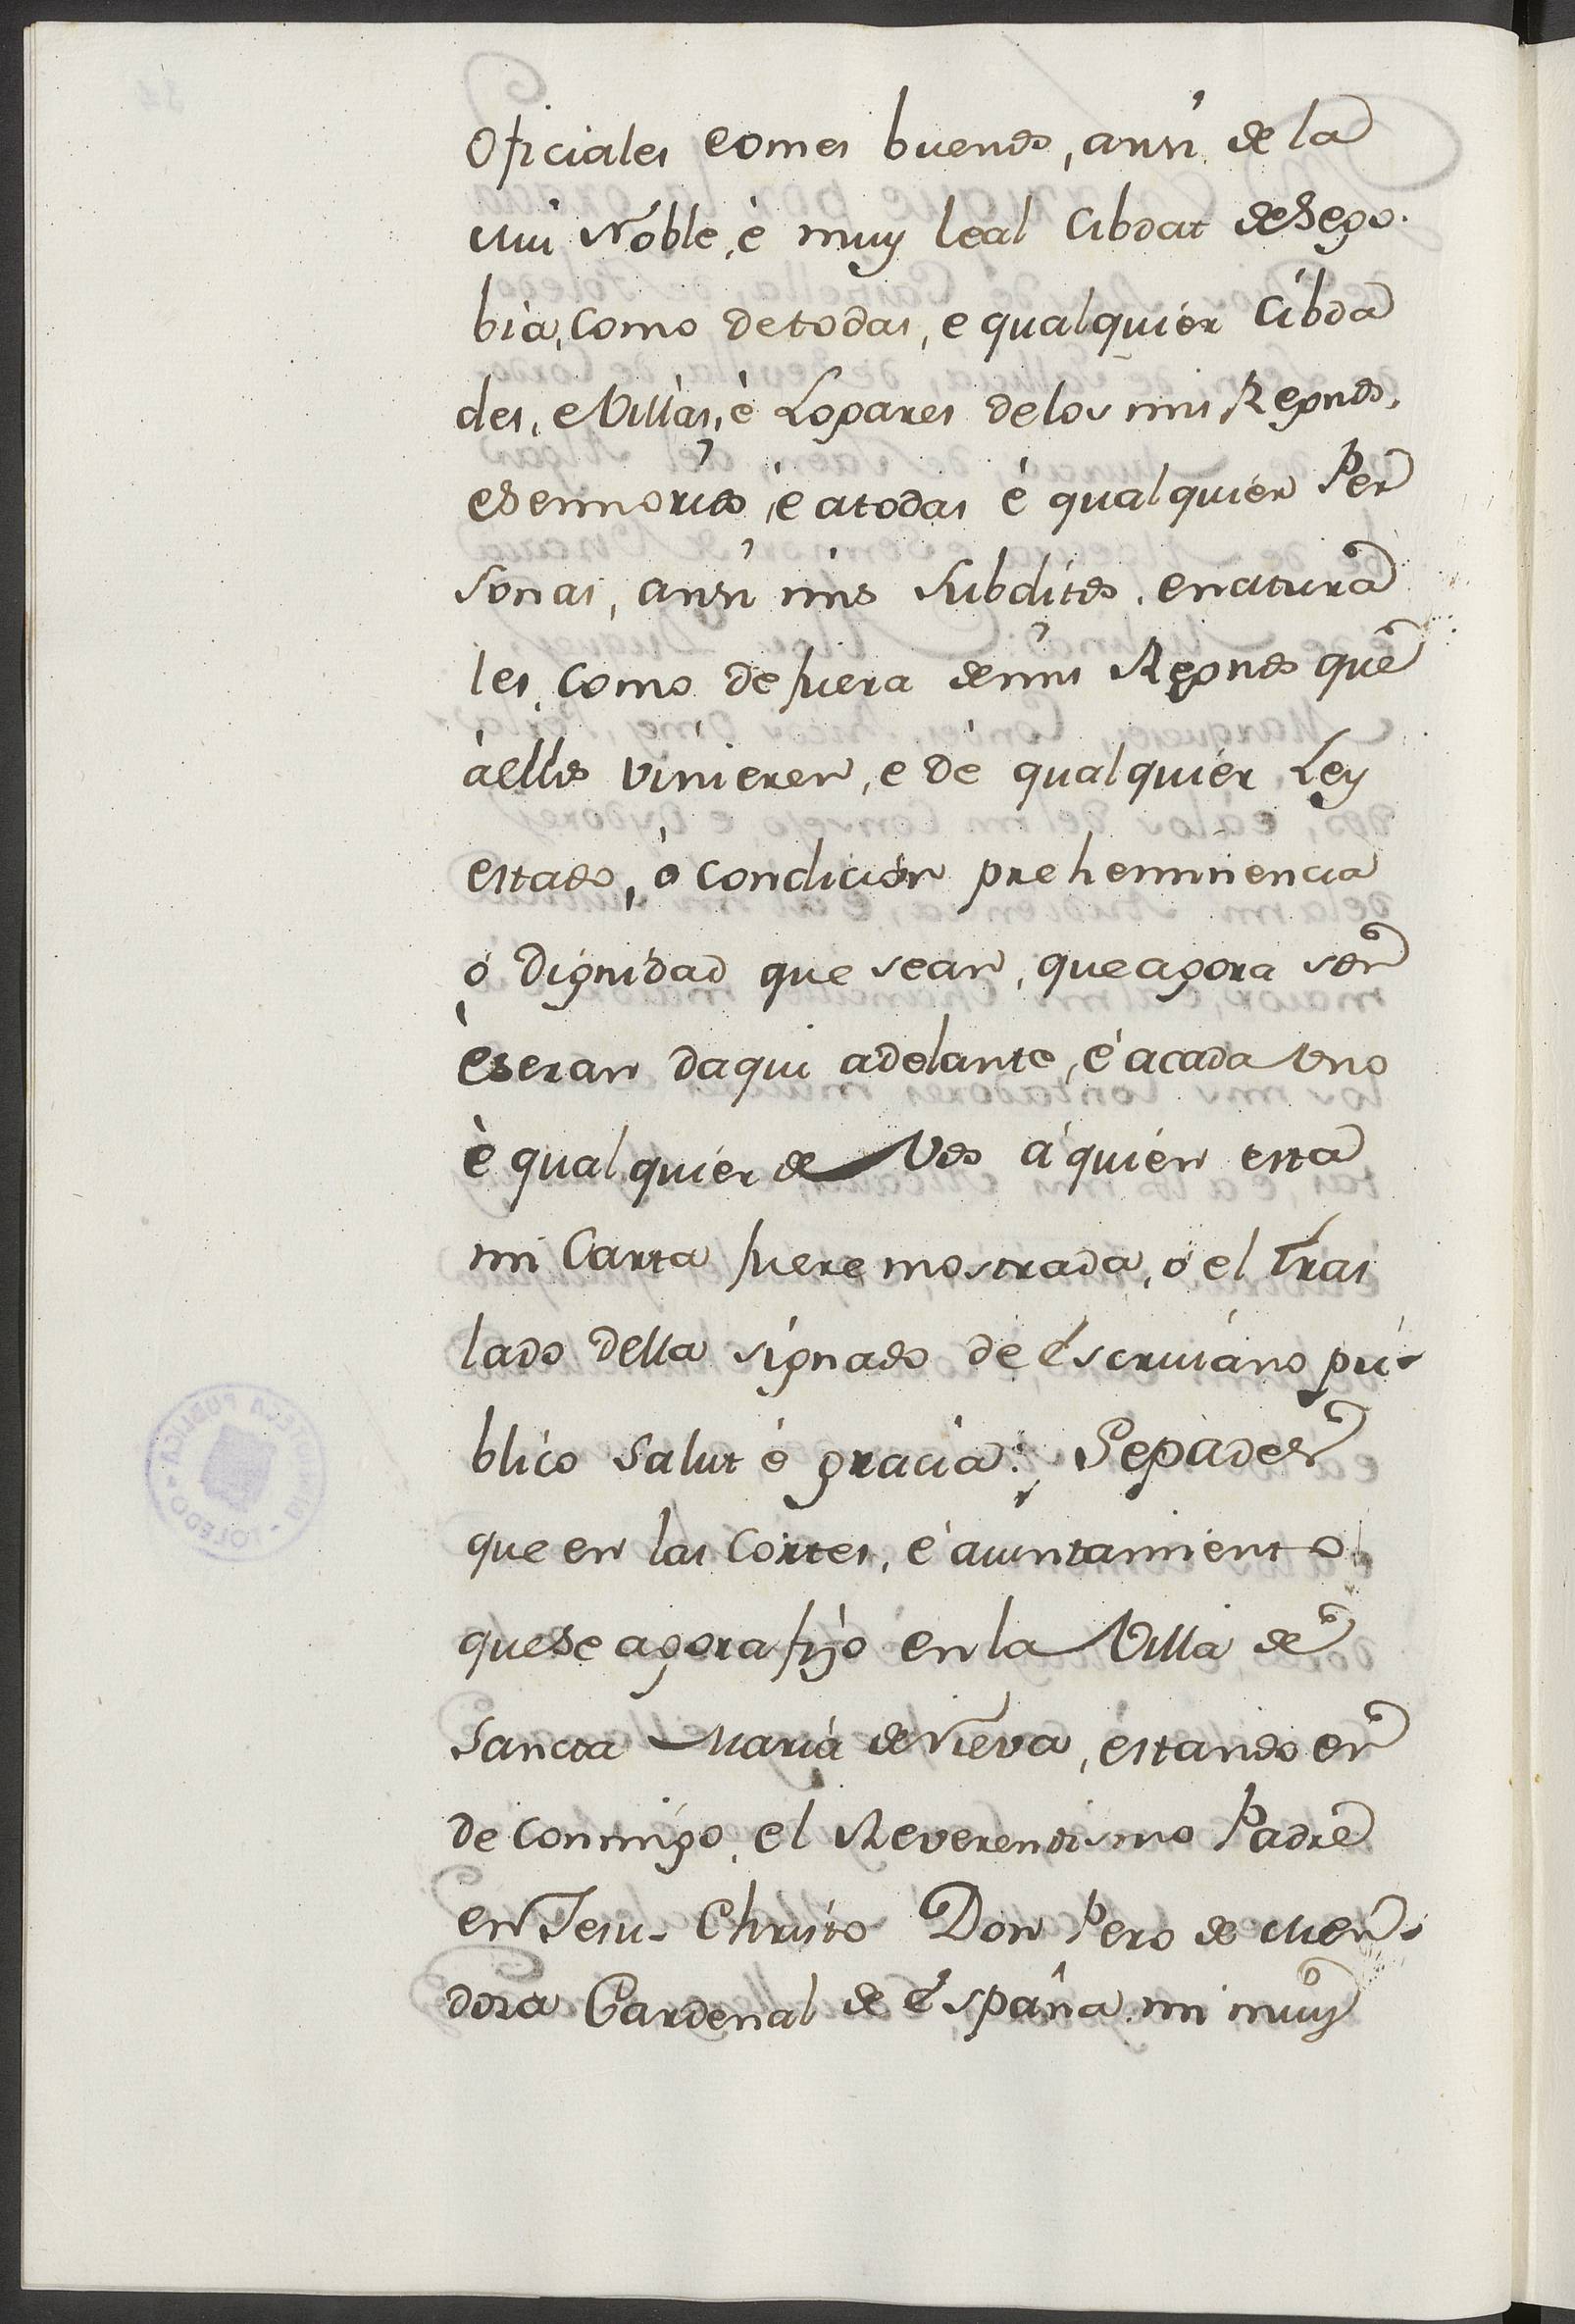 Oficiales eomes buenos, ansi de la
mui Noble, è muy leal Cibdat de Sego-
bia, como de todas, e qualquier Cibda
des, e Villas, è Logares de los mis Regnos,
e Sennorios, e a todas è qualquier Per
sonas, ansi mis subditos, e natura
les, como de fuera de mis Regnos que
à ellos vinieren, e de qualquier Ley
estado, ó condicion preheminencia
ó dignidad que sean, que agora son
è seran daqui adelante, é a cada uno
è qualquier de Vos á quien esta
mi Carta fuere mostrada, ó el tras
lado della signado de Escriuano pú-
blico salut é gracia: Sepades
que en las Cortes, é aiuntamiento
que Se agora fizo en la Villa de
Sancta Maria de Nieva, estando en
de conmigo, el Reverendismo Padre
en Jesu-Christo Don Pero de Men-
doza Cardenal de España mi muy
BIBLIOTECA PUBLICA
TOLEDO